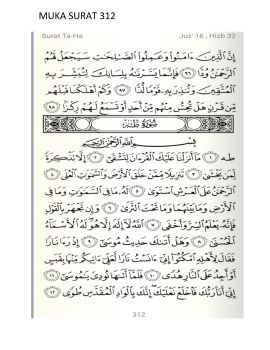 MUKA SURAT 312
Surat Ta-Ha Juz' 16 , Hizb 32
إِنَّ الَّذِينَ ءَامَنُوا وَعَمِلُوا الصَّالِحَاتِ سَيَجْعَلُ لَهُمُ
الرَّحْمَٰنُ وُدًّا ٩٦ فَإِنَّمَا يَسَّرْنَاهُ بِلِسَانِكَ لِتُبَشِّرَ بِهِ
الْمُتَّقِينَ وَتُنذِرَ بِهِ قَوْمًا لُّدًّا ٩٧ وَكَمْ أَهْلَكْنَا قَبْلَهُم
مِّن قَرْنٍ هَلْ تُحِسُّ مِنْهُم مِّنْ أَحَدٍ أَوْ تَسْمَعُ لَهُمْ رِكْزًا ٩٨
سُورَةُ طه
بِسْمِ اللَّهِ الرَّحْمَٰنِ الرَّحِيمِ
طه ١ مَا أَنزَلْنَا عَلَيْكَ الْقُرْءَانَ لِتَشْقَىٰ ٢ إِلَّا تَذْكِرَةً
لِّمَن يَخْشَىٰ ٣ تَنزِيلًا مِّمَّنْ خَلَقَ الْأَرْضَ وَالسَّمَاوَاتِ الْعُلَى ٤
الرَّحْمَٰنُ عَلَى الْعَرْشِ اسْتَوَىٰ ٥ لَهُ مَا فِي السَّمَاوَاتِ وَمَا فِي
الْأَرْضِ وَمَا بَيْنَهُمَا وَمَا تَحْتَ الثَّرَىٰ ٦ وَإِن تَجْهَرْ بِالْقَوْلِ
فَإِنَّهُ يَعْلَمُ السِّرَّ وَأَخْفَى ٧ اللَّهُ لَا إِلَٰهَ إِلَّا هُوَ لَهُ الْأَسْمَاءُ
الْحُسْنَىٰ ٨ وَهَلْ أَتَاكَ حَدِيثُ مُوسَىٰ ٩ إِذْ رَءَا نَارًا
فَقَالَ لِأَهْلِهِ امْكُثُوا إِنِّي ءَانَسْتُ نَارًا لَّعَلِّي ءَاتِيكُم مِّنْهَا بِقَبَسٍ
أَوْ أَجِدُ عَلَى النَّارِ هُدًى ١٠ فَلَمَّا أَتَاهَا نُودِيَ يَا مُوسَىٰ ١١
إِنِّي أَنَا رَبُّكَ فَاخْلَعْ نَعْلَيْكَ إِنَّكَ بِالْوَادِ الْمُقَدَّسِ طُوًى ١٢
312